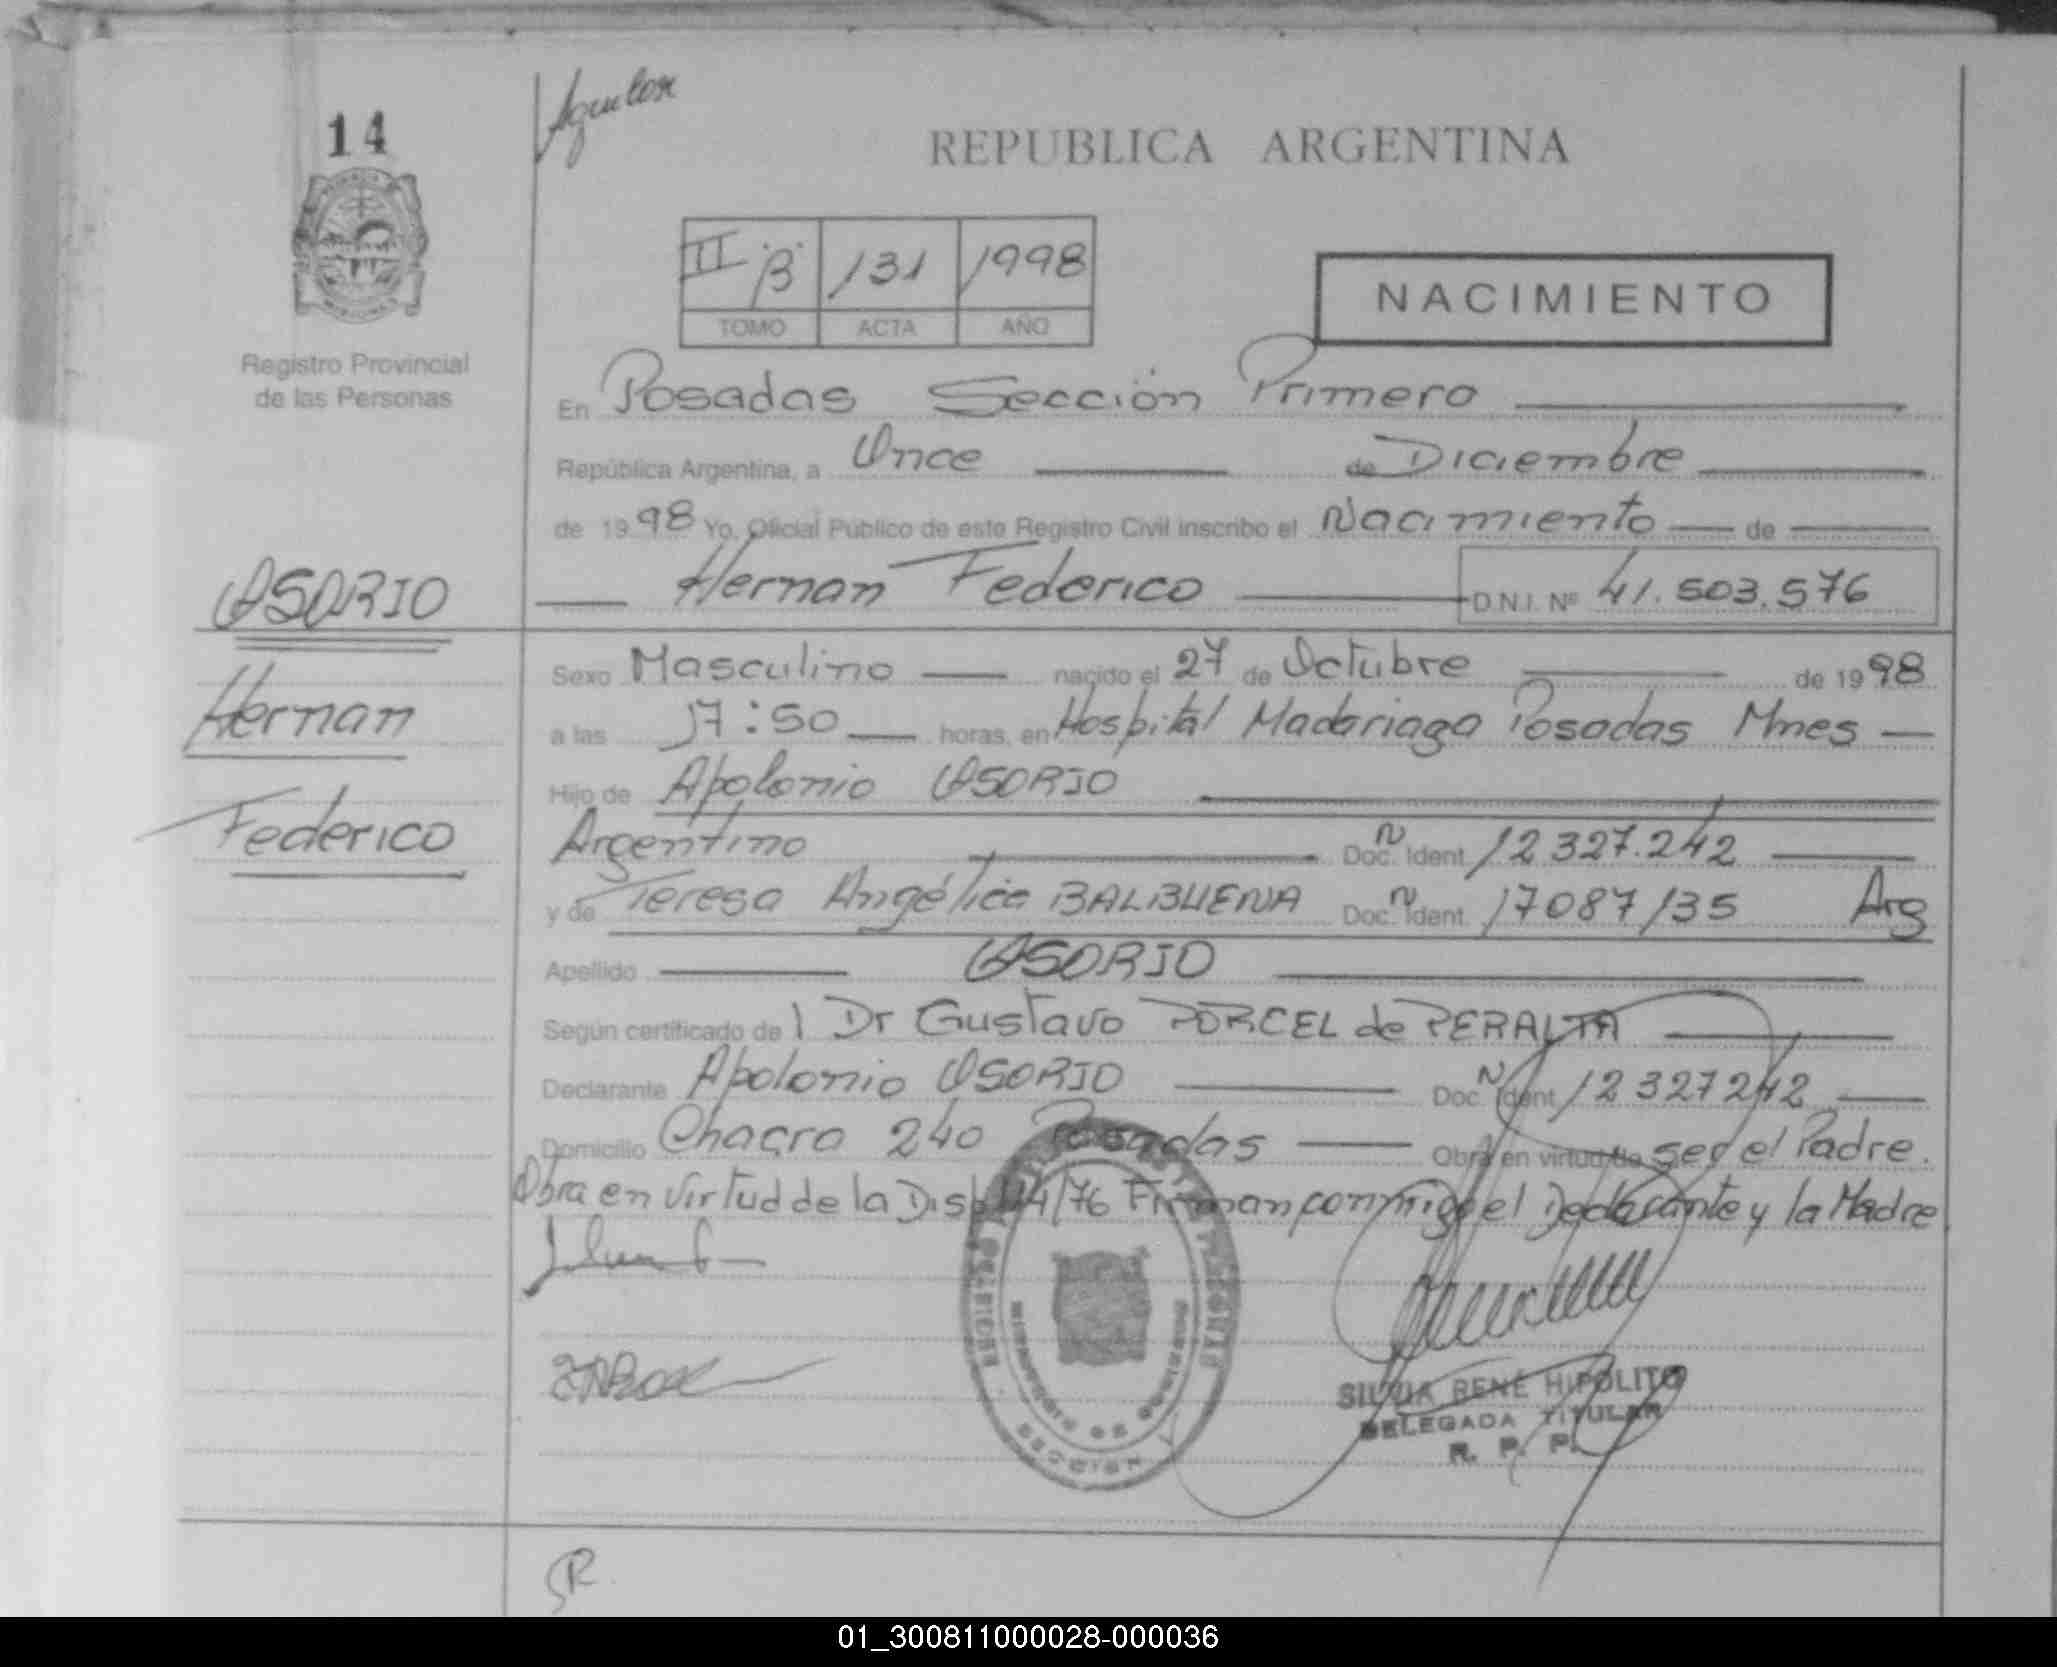 14
Aguilar
REPUBLICA ARGENTINA
II "B" 131 1998
TOMO ACTA AÑO
NACIMIENTO
Registro Provincial
de las Personas
En Posadas Sección Primera
República Argentina, a Once de Diciembre
de 1998 Yo, Oficial Público de este Registro Civil inscribo el Nacimiento de
OSORIO
Hernan Federico D.N.I. Nº 41.503.576
Hernan
Federico
Sexo Masculino nacido el 27 de Octubre de 1998
a las 17:50 horas, en Hospital Madariaga Posadas Mnes
Hijo de Apolonio OSORIO
Argentino Doc. Ident. 12 327.242
y de Teresa Angélica BALBUENA Doc. Ident. 17087135 Arg
Apellido OSORIO
Según certificado de l Dr Gustavo PORCEL de PERALTA
Declarante Apolonio OSORIO Doc. Ident. 12 327242
Domicilio Chacra 240 Posadas Obra en virtud de ser el Padre.
Obra en virtud de la Disp 44/76 Firman conmigo el Declarante y la Madre
SILVIA RENÉ HIPOLITO
DELEGADA TITULAR
R. P. P.
SECCION
MINISTERIO DE GOBIERNO
01_300811000028-000036